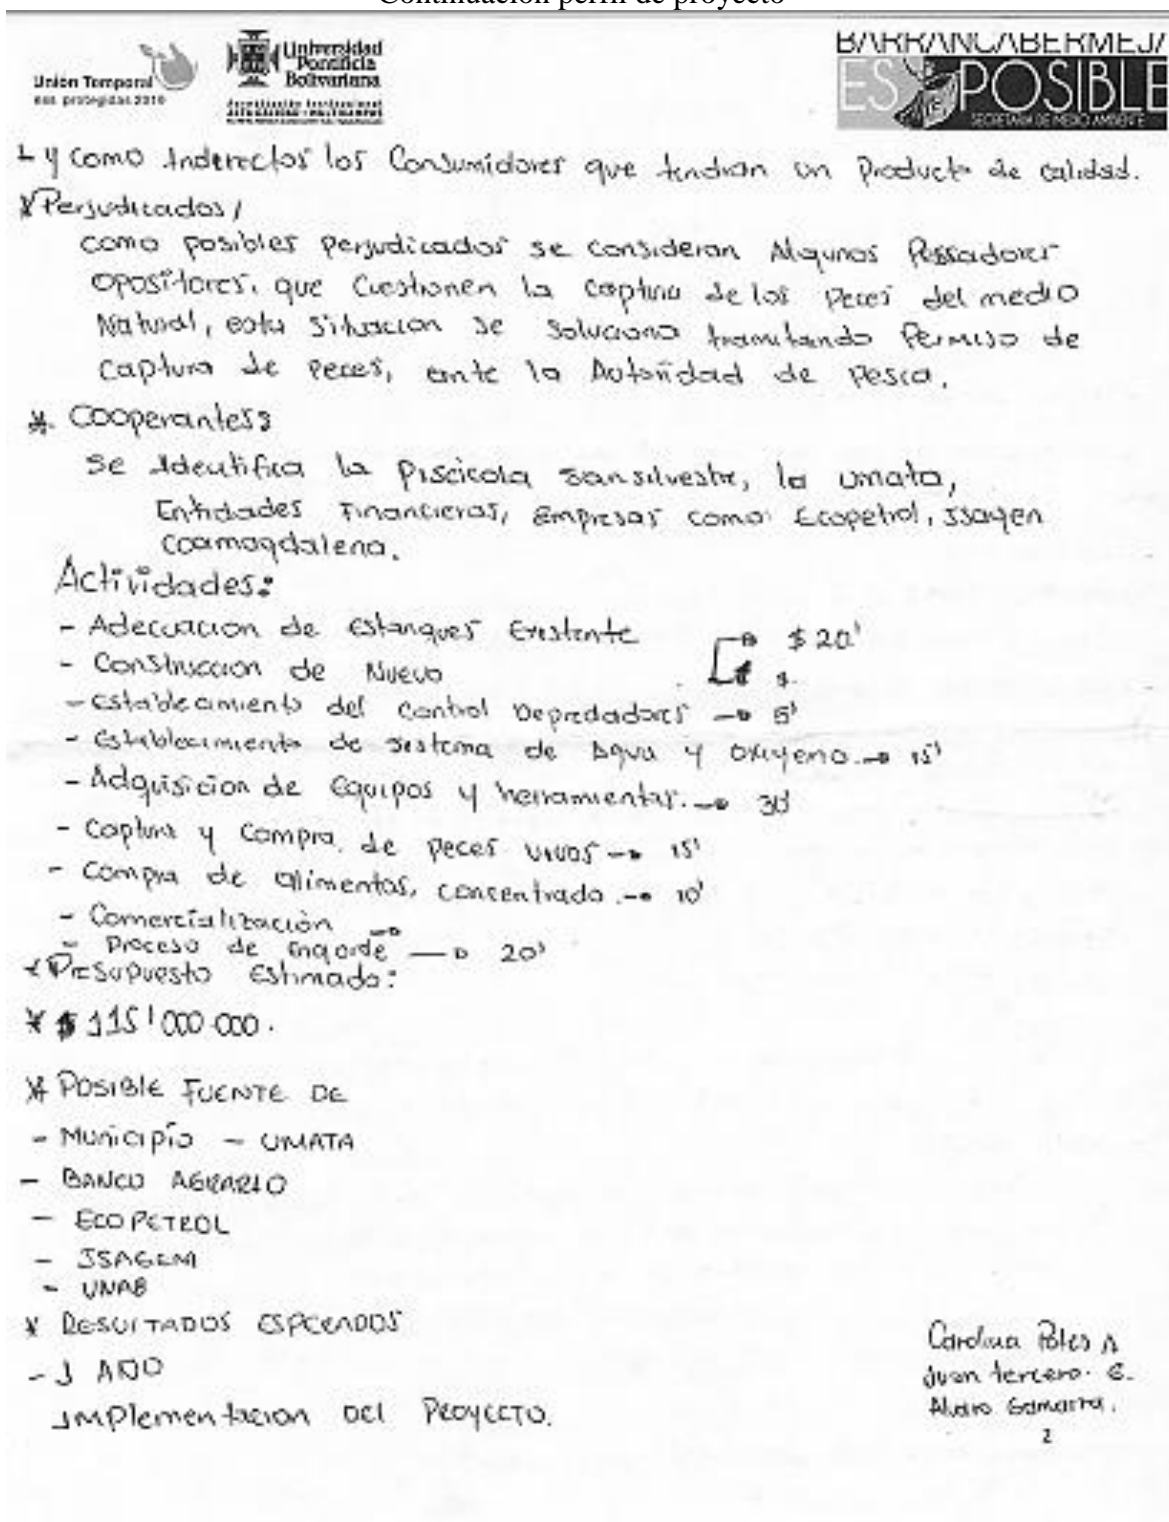 Continuación perfil de proyecto
Unión Temporal
eas. protegidas 2010
Universidad
Pontificia
Bolivariana
BARRANCABERMEJA
ES POSIBLE
SECRETARIA DE MEDIO AMBIENTE
y como Inderectos los Consumidores que tendran un Producto de calidad.
* Perjudicados /
como posibles perjudicados se consideran Algunos Pescadores
opositores, que Cuestionen la captura de los Peces del medio
Natural, esta situacion se soluciona tramitando Permiso de
captura de Peces, ante la Autoridad de Pesca.
* Cooperantes:
se Identifica la Piscicola sansilvestre, la umata,
Entidades Financieras, Empresas como: Ecopetrol, Isagen
Coamagdalena.
Actividades:
- Adecuacion de Estanques Existente $ 20'
- Construccion de Nuevo $
- establecimiento del control Depredadores → 5'
- Establecimiento de sistema de Agua y oxigeno. → 15'
- Adquisicion de Equipos y herramientas. → 30'
- Captura y Compra de Peces vivos → 15'
- Compra de alimentos, concentrado. → 10'
- Comercialización →
- Proceso de Engorde → 20'
* Presupuesto Estimado:
* $ 115'000.000.
* POSIBLE FUENTE DE
- Municipio - UMATA
- BANCO AGRARIO
- ECOPETROL
- ISAGEN
- UNAB
* RESULTADOS ESPERADOS
- 1 AÑO
Implementacion DEL PROYECTO.
Carolina
Juan tercero. C.
Alvaro Gamarra.
2